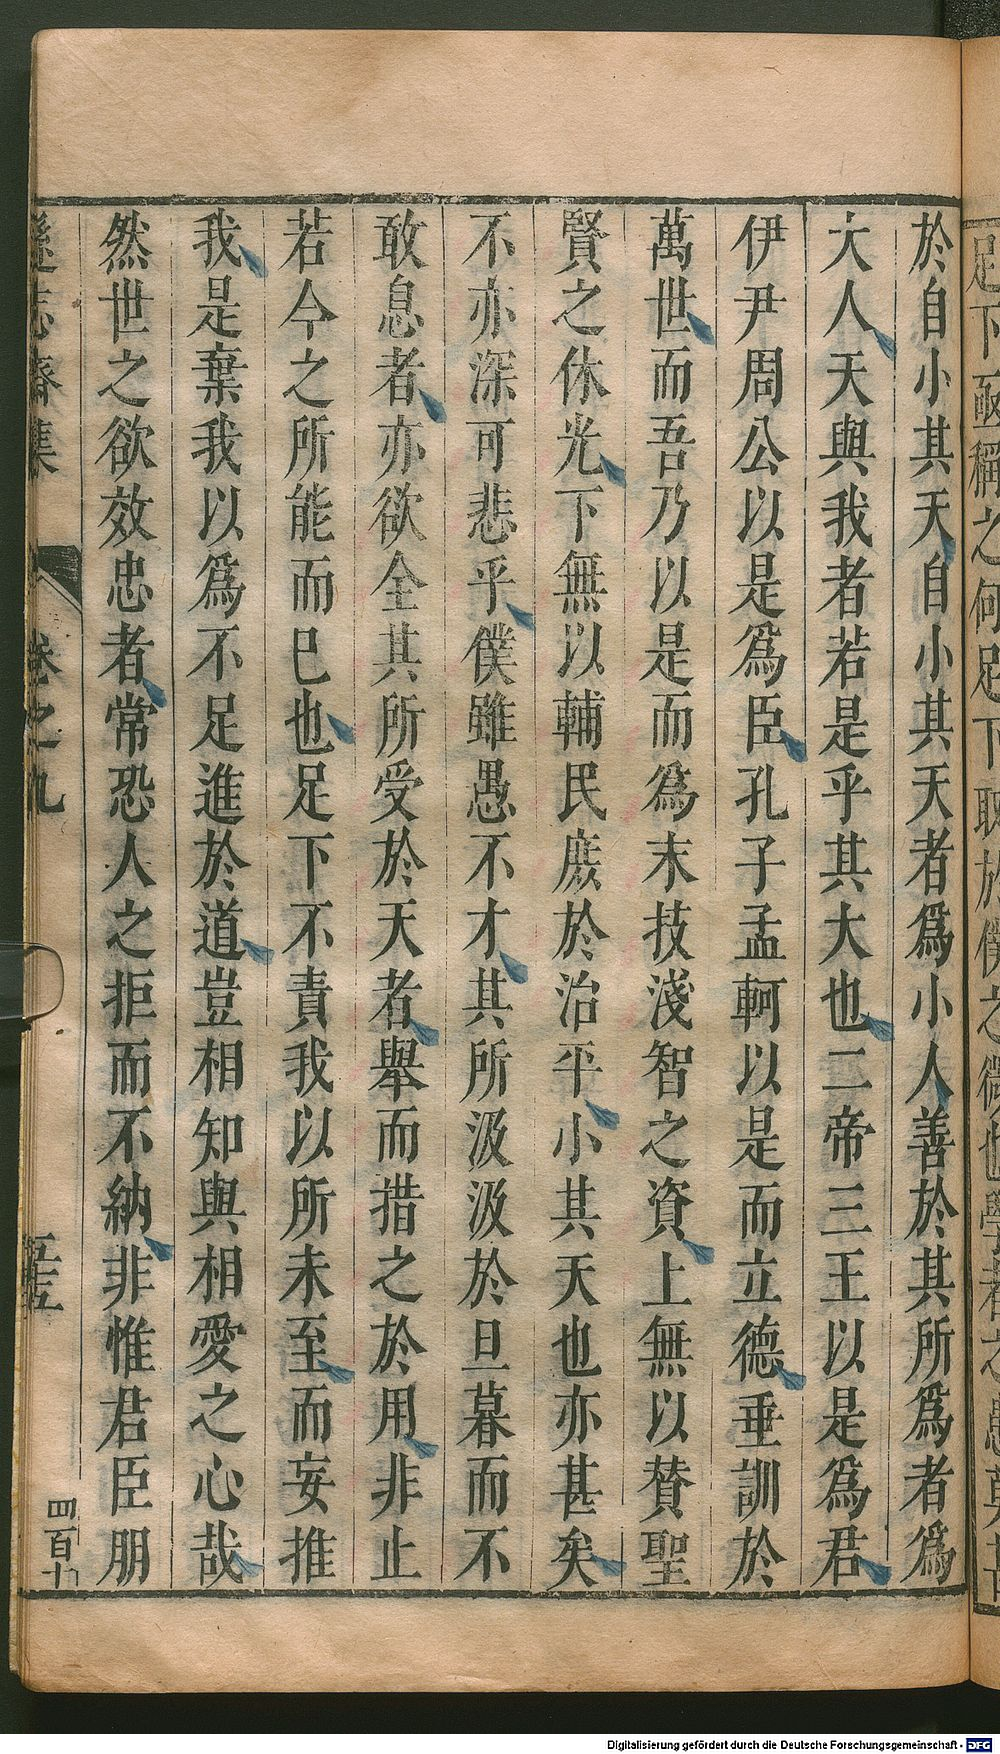 於自小其天自小其天者爲小人善於其所爲者爲
大人天與我者若是乎其大也二帝三王以是爲君
伊尹周公以是爲臣孔子孟軻以是而立德垂訓於
萬世而吾乃以是而爲末技淺智之資上無以賛聖
賢之休光下無以輔民庶於治平小其天也亦甚矣
不亦深可悲乎僕雖愚不才其所汲汲於旦暮而不
敢息者亦欲全其所受於天者舉而措之於用非止
若今之所能而已也足下不責我以所未至而妄推
我是棄我以爲不足進於道豈相知與相愛之心哉
然世之欲效忠者常恐人之拒而不納非惟君臣朋
遜志齋集 卷之九 五五 四百十
Digitalisierung gefördert durch die Deutsche Forschungsgemeinschaft - DFG